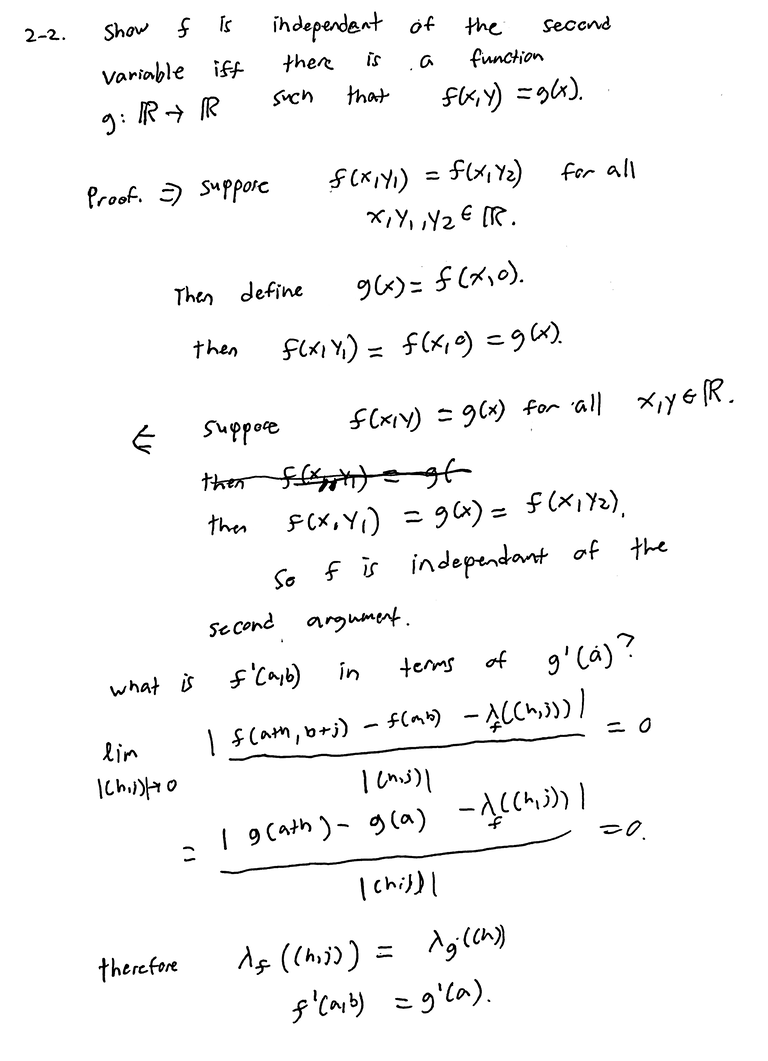 2-2. Show f is independent of the second
variable iff there is a function
g: ℝ → ℝ such that f(x,y) = g(x).
Proof. ⇒) suppose f(x,y₁) = f(x,y₂) for all
x,y₁,y₂ ∈ ℝ.
Then define g(x) = f(x,0).
then f(x,y₁) = f(x,0) = g(x).
⇐ suppose f(x,y) = g(x) for all x,y ∈ ℝ.
then f(x,y₁) = g(
then f(x,y₁) = g(x) = f(x,y₂).
So f is independant of the
second argument.
what is f'(a,b) in terms of g'(a)?
lim |(h,j)|→0 | f(a+h, b+j) - f(a,b) - λ_f((h,j)) | / |(h,j)| = 0
= | g(a+h) - g(a) - λ_f((h,j)) | / |(h,j)| = 0.
therefore λ_f((h,j)) = λ_g((h))
f'(a,b) = g'(a).